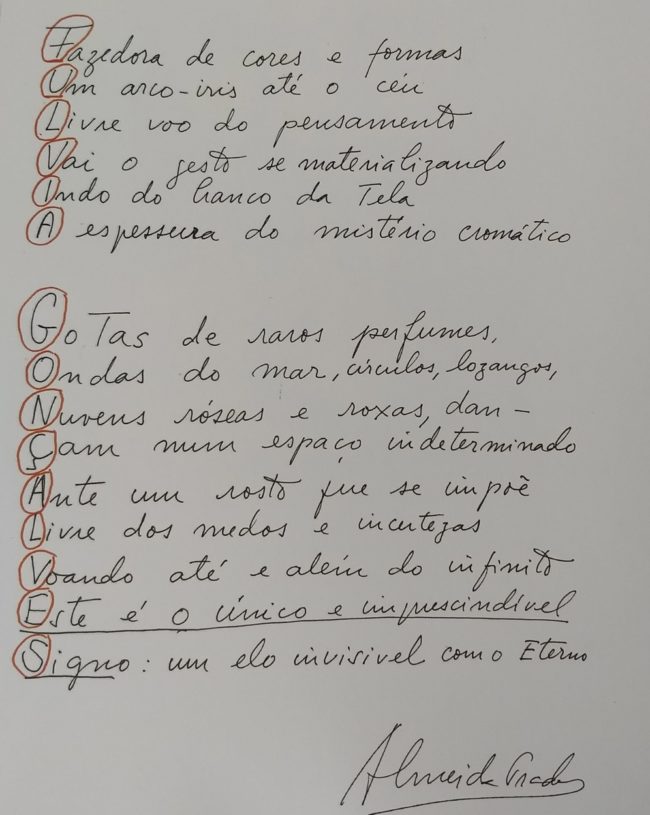 Fazedora de cores e formas
Um arco-iris até o céu
Livre voo do pensamento
Vai o gesto se materializando
Indo do branco da Tela
A espessura do mistério cromático
Gotas de raros perfumes,
Ondas do mar, círculos, lozangos,
Nuvens róseas e roxas, dan-
Çam num espaço indeterminado
Ante um rosto que se impõe
Livre dos medos e incertezas
Voando até e além do infinito
Este é o único e imprescindível
Signo: um elo invisivel com o Eterno
Almeida Prado